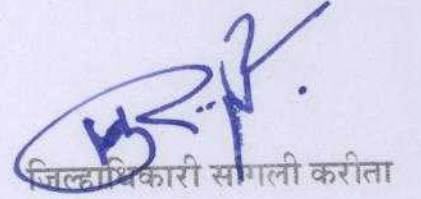 जिल्हाधिकारी सांगली करीता